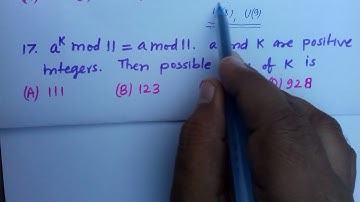 U(9)
17. a^k mod 11 = a mod 11. a and K are positive
integers. Then possible of K is
(A) 111 (B) 123 (D) 928